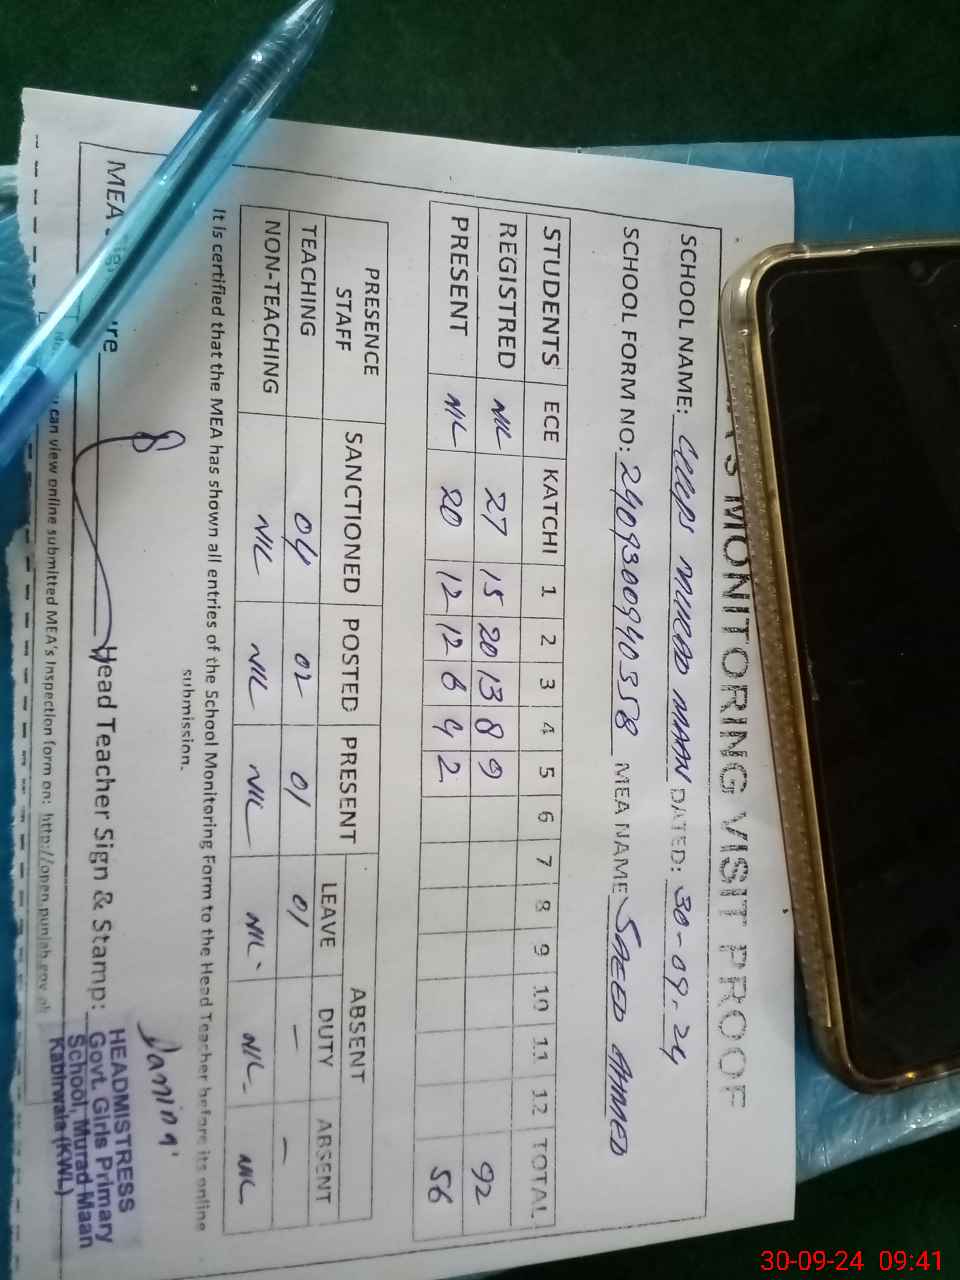 'S MONITORING VISIT PROOF
SCHOOL NAME: GGPS MURAD MAAN DATED: 30-09-24
SCHOOL FORM NO: MEA NAME SAEED AHMED
STUDENTS ECE KATCHI 1 2 3 4 5 6 7 8 9 10 11 12 TOTAL
REGISTRED NIL 27 15 20 13 8 9 92
PRESENT NIL 20 12 12 6 4 2 56
PRESENCE STAFF SANCTIONED POSTED PRESENT ABSENT
LEAVE DUTY ABSENT
TEACHING 04 02 01 01 — —
NON-TEACHING NIL NIL NIL NIL NIL NIL
It is certified that the MEA has shown all entries of the School Monitoring Form to the Head Teacher before its online
submission.
MEA Head Teacher Sign & Stamp:
HEADMISTRESS
Govt. Girls Primary
School, Murad Maan
Kabirwala (KWL)
can view online submitted MEA's Inspection form on: http://open.punjab.gov.pk
30-09-24 09:41